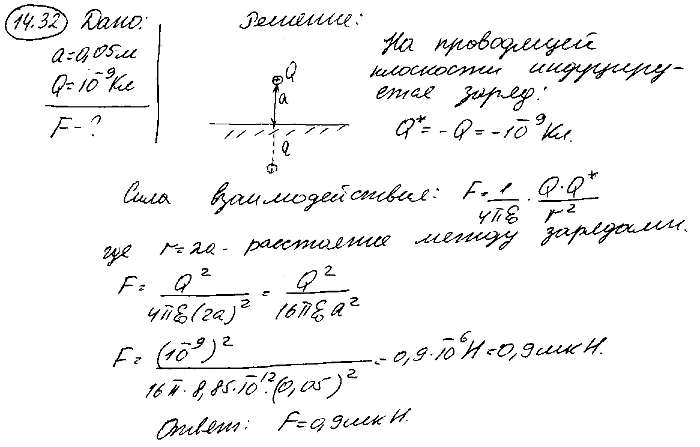 14.32 Дано: Решение:
a=0,05м
Q=10⁻⁹Кл
F-?
Q
a
a
На проводящей
плоскости индуциру-
ется заряд:
Q*=-Q=-10⁻⁹Кл.
Сила взаимодействия: F=1/(4πε₀)·(Q·Q*)/r²
где r=2a- расстояние между зарядами.
F=Q²/(4πε₀(2a)²)=Q²/(16πε₀a²)
F=(10⁻⁹)²/(16π·8,85·10⁻¹²·(0,05)²)=0,9·10⁻⁶Н=0,9мкН.
Ответ: F=0,9мкН.